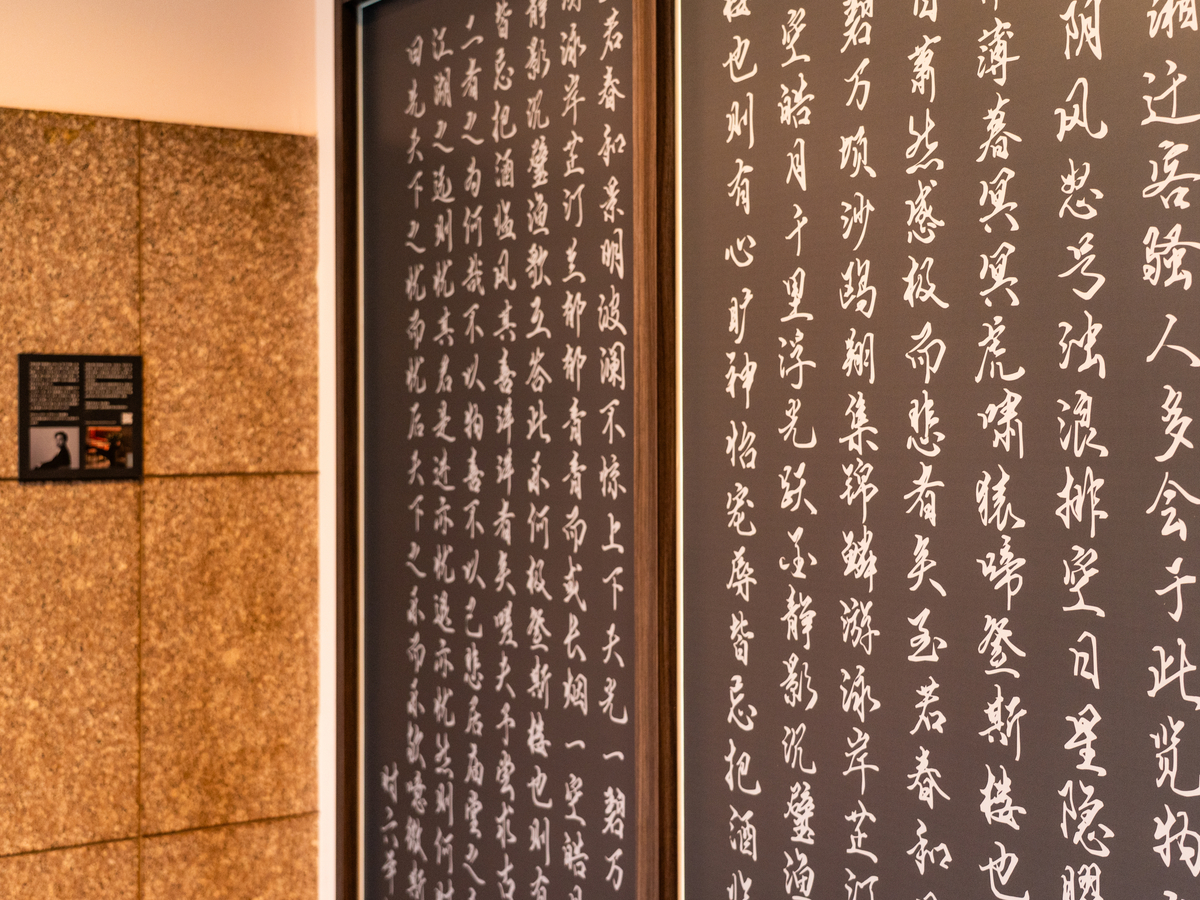 湘迁客骚人多会于此览物
阴风怒号浊浪排空日星隐曜
薄暮冥冥虎啸猿啼登斯楼也
目萧然感极而悲者矣至若春和
碧万顷沙鸥翔集锦鳞游泳岸芷汀
空皓月千里浮光跃金静影沉璧渔
楼也则有心旷神怡宠辱皆忘把酒临
若春和景明波澜不惊上下天光一碧万
泳岸芷汀兰郁郁青青而或长烟一空皓月
静影沉璧渔歌互答此乐何极登斯楼也则有
皆忘把酒临风其喜洋洋者矣嗟夫予尝求古
二者之为何哉不以物喜不以己悲居庙堂之
江湖之远则忧其君是进亦忧退亦忧然则何时
曰先天下之忧而忧后天下之乐而乐欤噫微斯
时六年